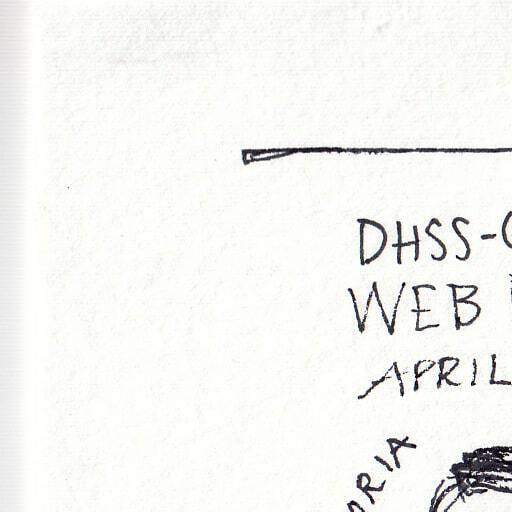 DHSS-
WEB
APRIL
ORIA